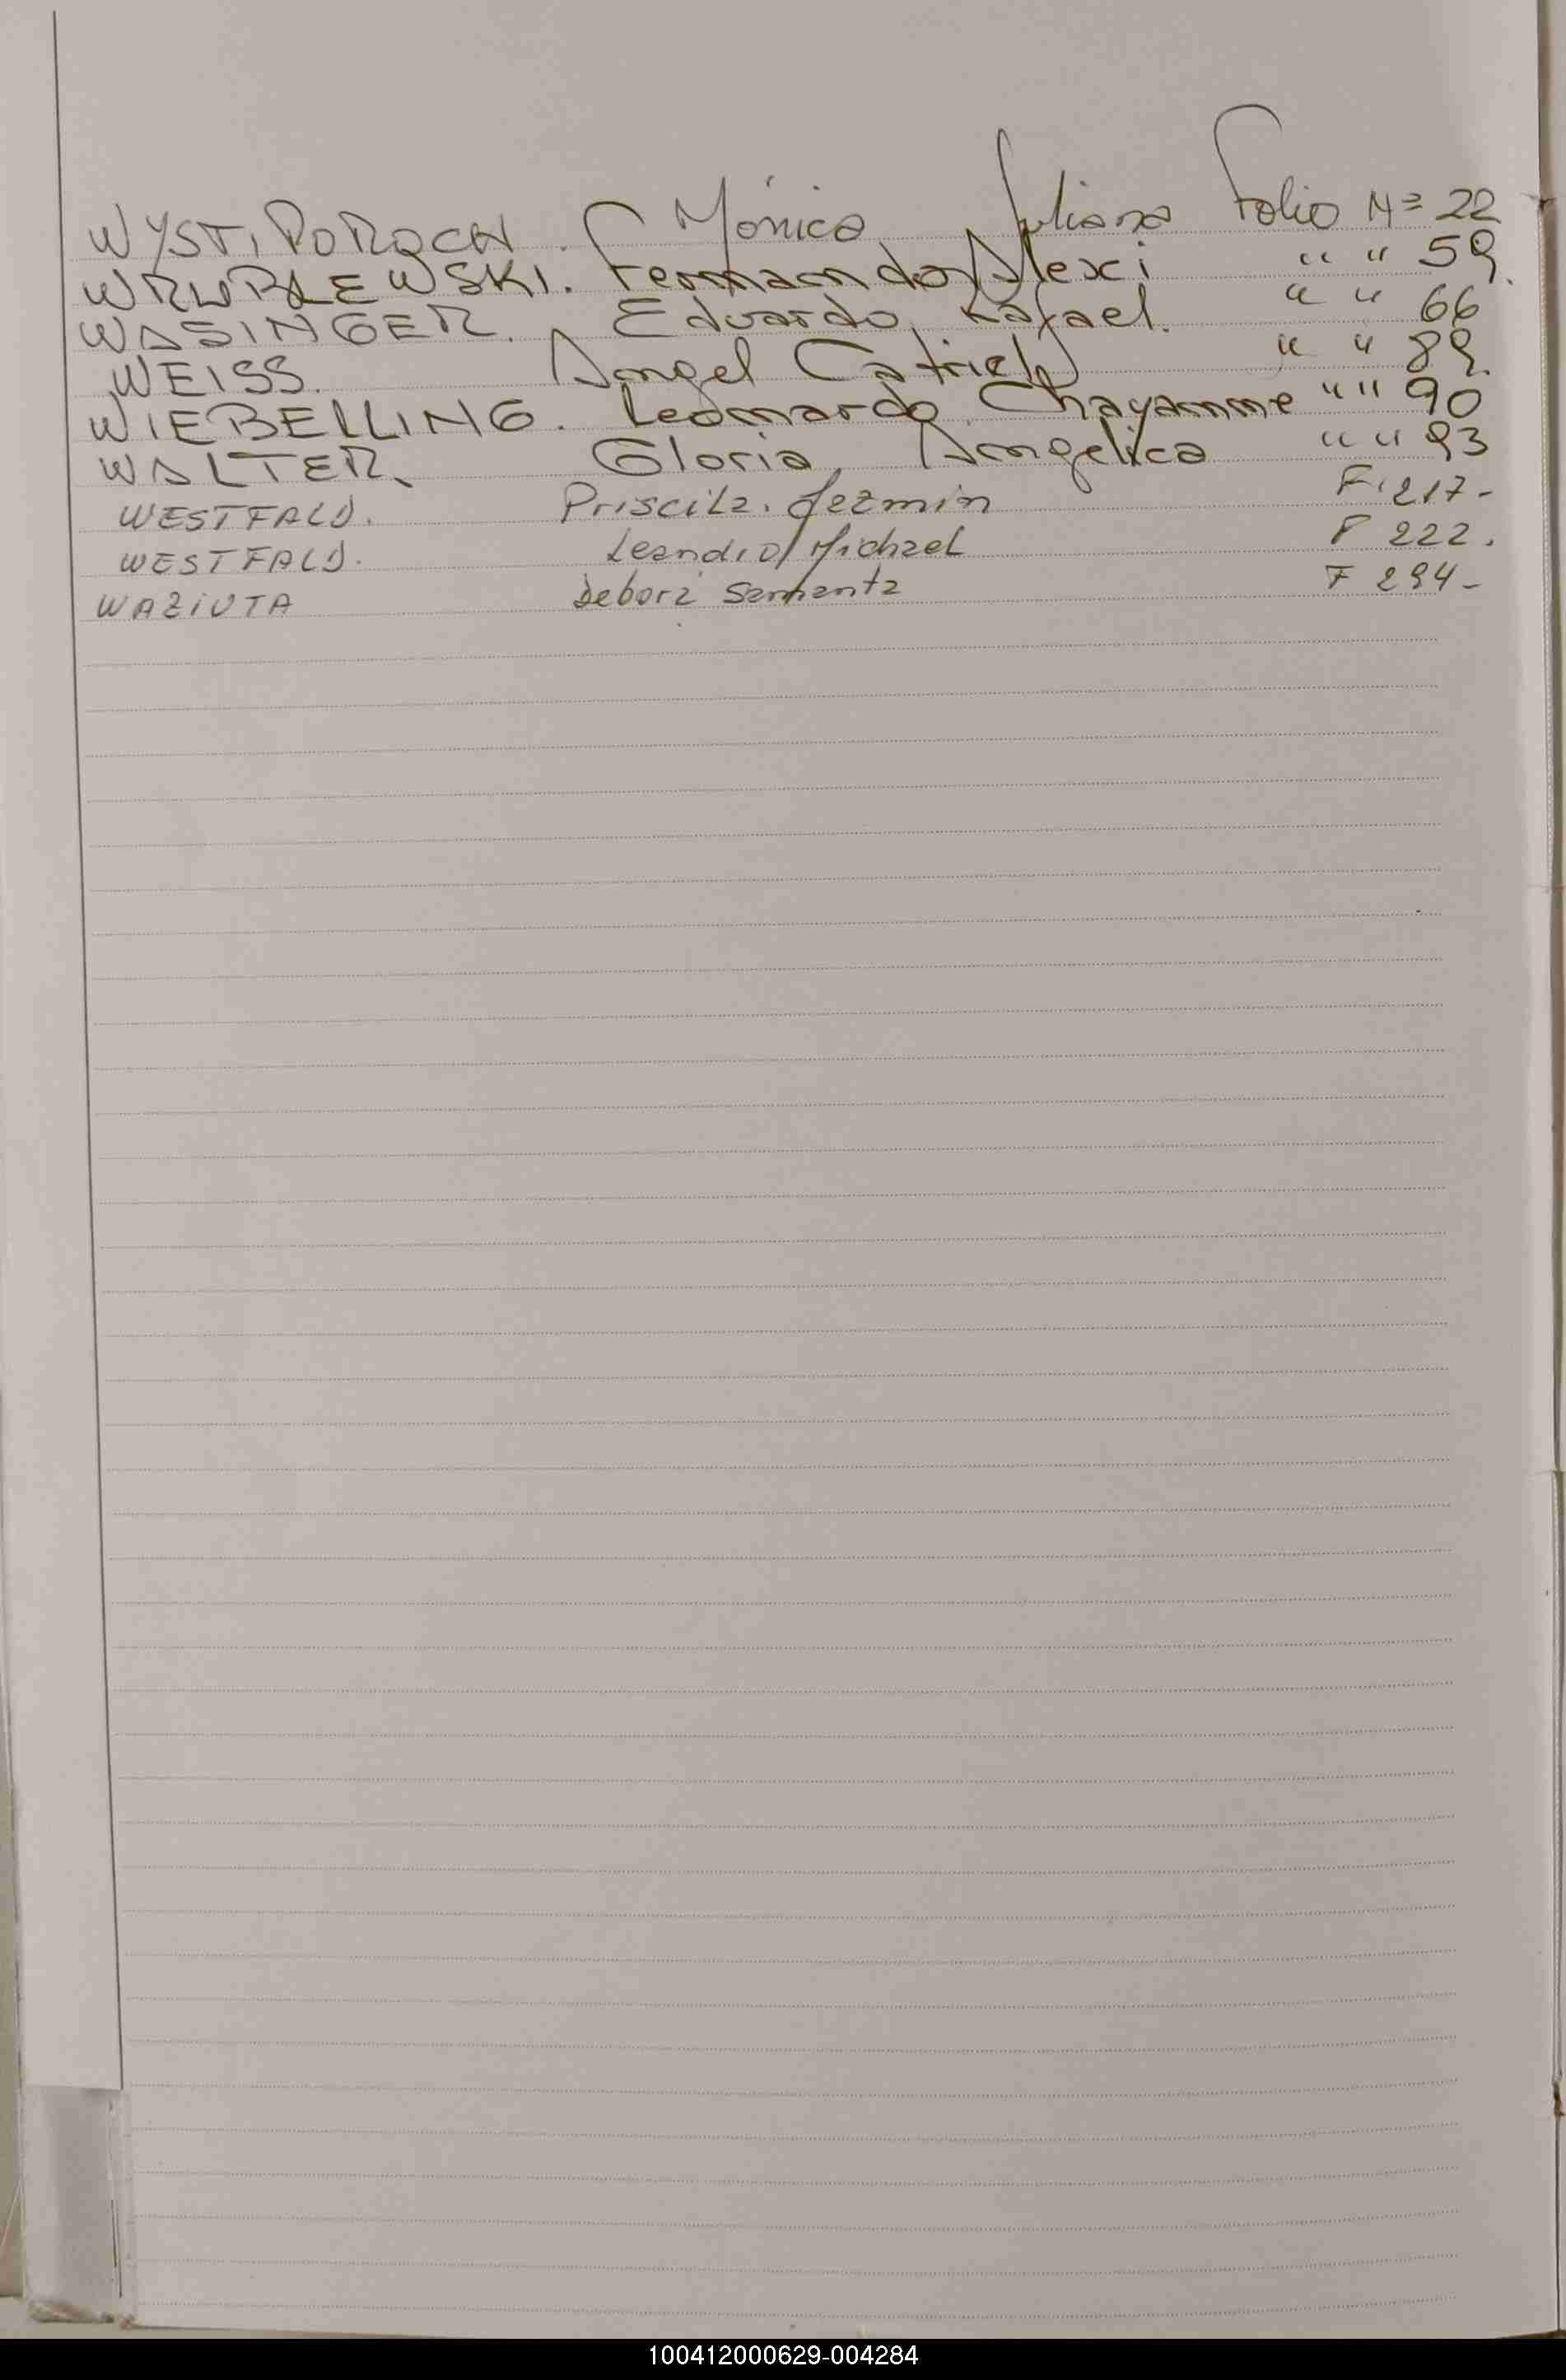 WYSTIPOROCH. Mónica Juliana Folio Nº 22
WRUBLEWSKI. Fernando Alexi " " 59.
WASINGER. Eduardo, Rafael. " " 66
WEISS. Angel Catriel " " 89
WIEBELLING. Leonardo Chayanne " " 90
WALTER. Gloria, Angelica " " 93
WESTFALD. Priscila. Jezmin F. 217-
WESTFALD. Leandro Michael F 222.
WAZIUTA Debora Samanta F 294-
100412000629-004284